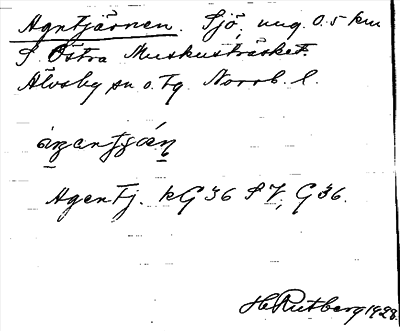 Agntjärnen. Sjö, ung. 0.5 km
S. Östra Muskusträsket.
Älvsby sn o. tg Norrb. l.
Agentj. kG 36 SV, G 36.
H Rutberg 1928.